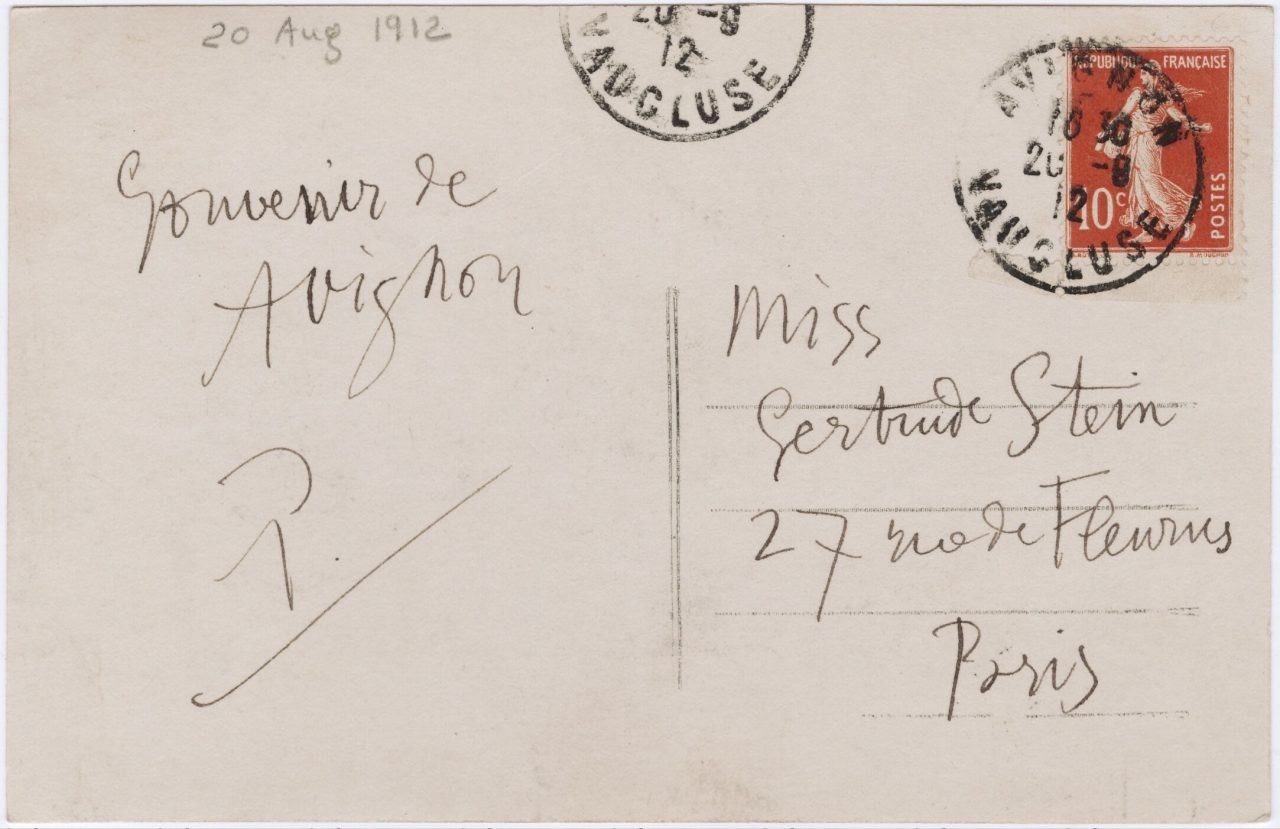 20 Aug 1912
20 -8
12
VAUCLUSE
REPUBLIQUE FRANÇAISE
10c
POSTES
AVIGNON
16 30
20 -8
12
VAUCLUSE
Souvenir de
Avignon
P.
Miss
Gertrude Stein
27 rue de Fleurus
Paris